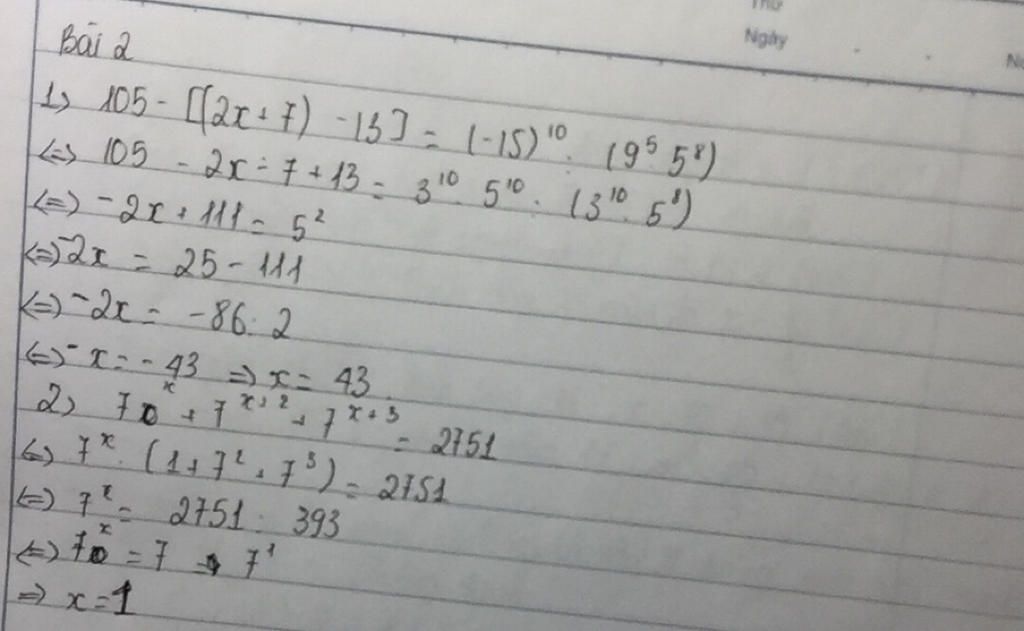 Thứ
Ngày
Bài 2
1) 105 - [(2x + 7) - 13] = (-15)¹⁰ : (9⁵ . 5⁸)
<=> 105 - 2x - 7 + 13 = 3¹⁰ . 5¹⁰ : (3¹⁰ . 5⁸)
<=> -2x + 111 = 5²
<=> -2x = 25 - 111
<=> -2x = -86 : 2
<=> -x = -43 => x = 43
2) 7ˣ + 7ˣ⁺² + 7ˣ⁺³ = 2751
<=> 7ˣ . (1 + 7² + 7³) = 2751
<=> 7ˣ = 2751 : 393
<=> 7ˣ = 7 => 7¹
=> x = 1